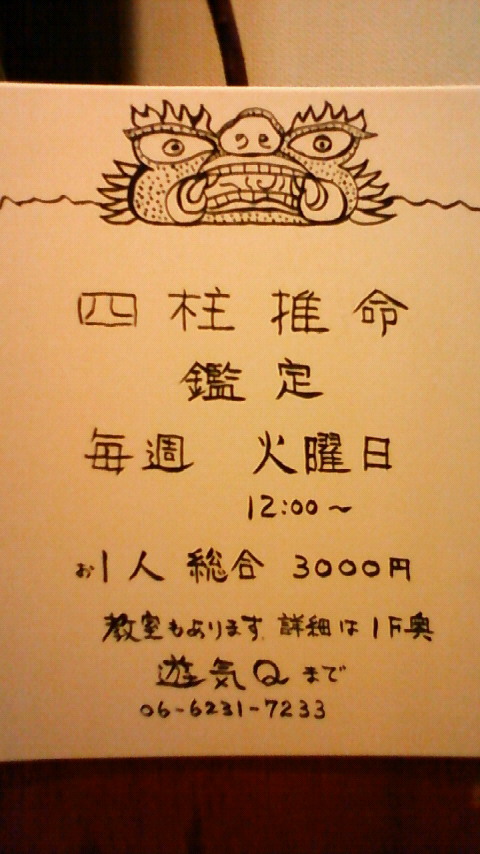 四柱推命
鑑定
毎週 火曜日
12:00~
お1人 総合 3000円
教室もあります. 詳細は1F奥
遊気Qまで
06-6231-7233